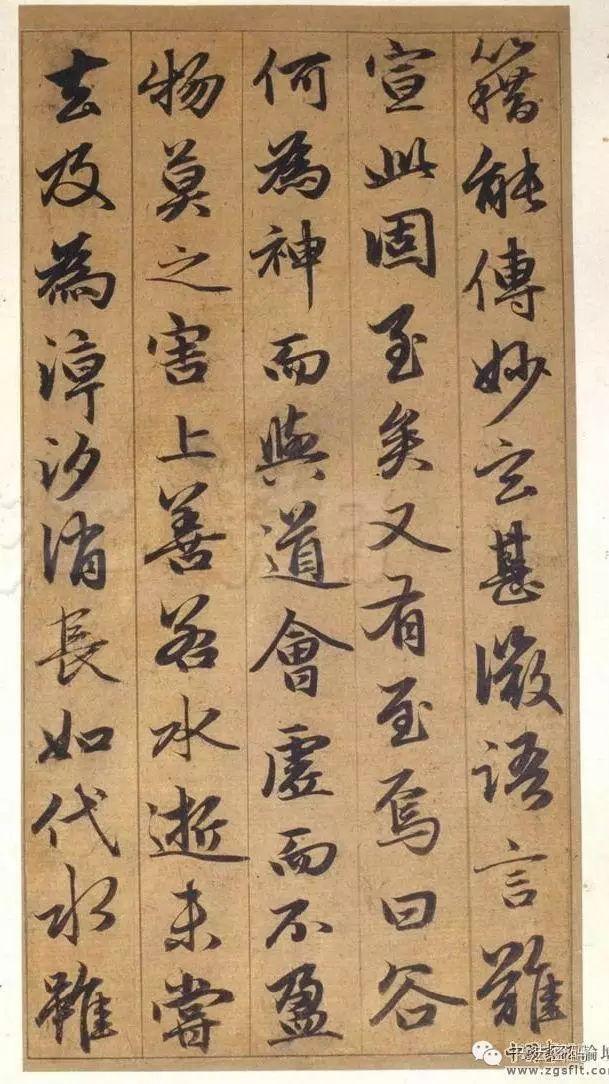 籍能傳妙玄甚微語言難
宣此固至矣又有至焉曰谷
何為神而與道會虛而不盈
物莫之害上善若水逝未嘗
去及為漳汐消長如代水雖
www.zgsflt.com